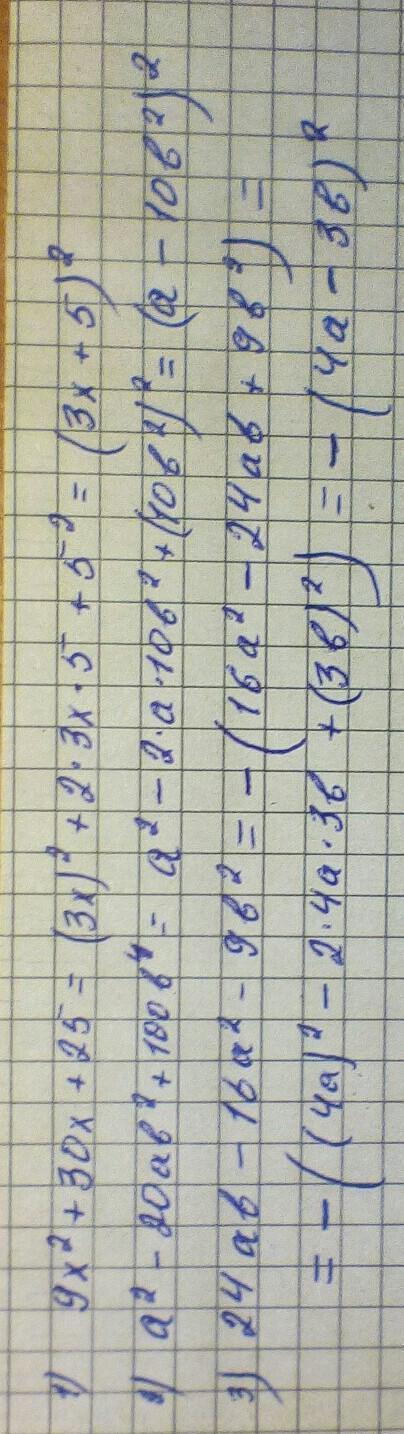 1) 9x² + 30x + 25 = (3x)² + 2·3x·5 + 5² = (3x + 5)²
2) a² - 20ab² + 100b⁴ = a² - 2·a·10b² + (10b²)² = (a - 10b²)²
3) 24ab - 16a² - 9b² = - (16a² - 24ab + 9b²) =
= - ((4a)² - 2·4a·3b + (3b)²) = - (4a - 3b)²